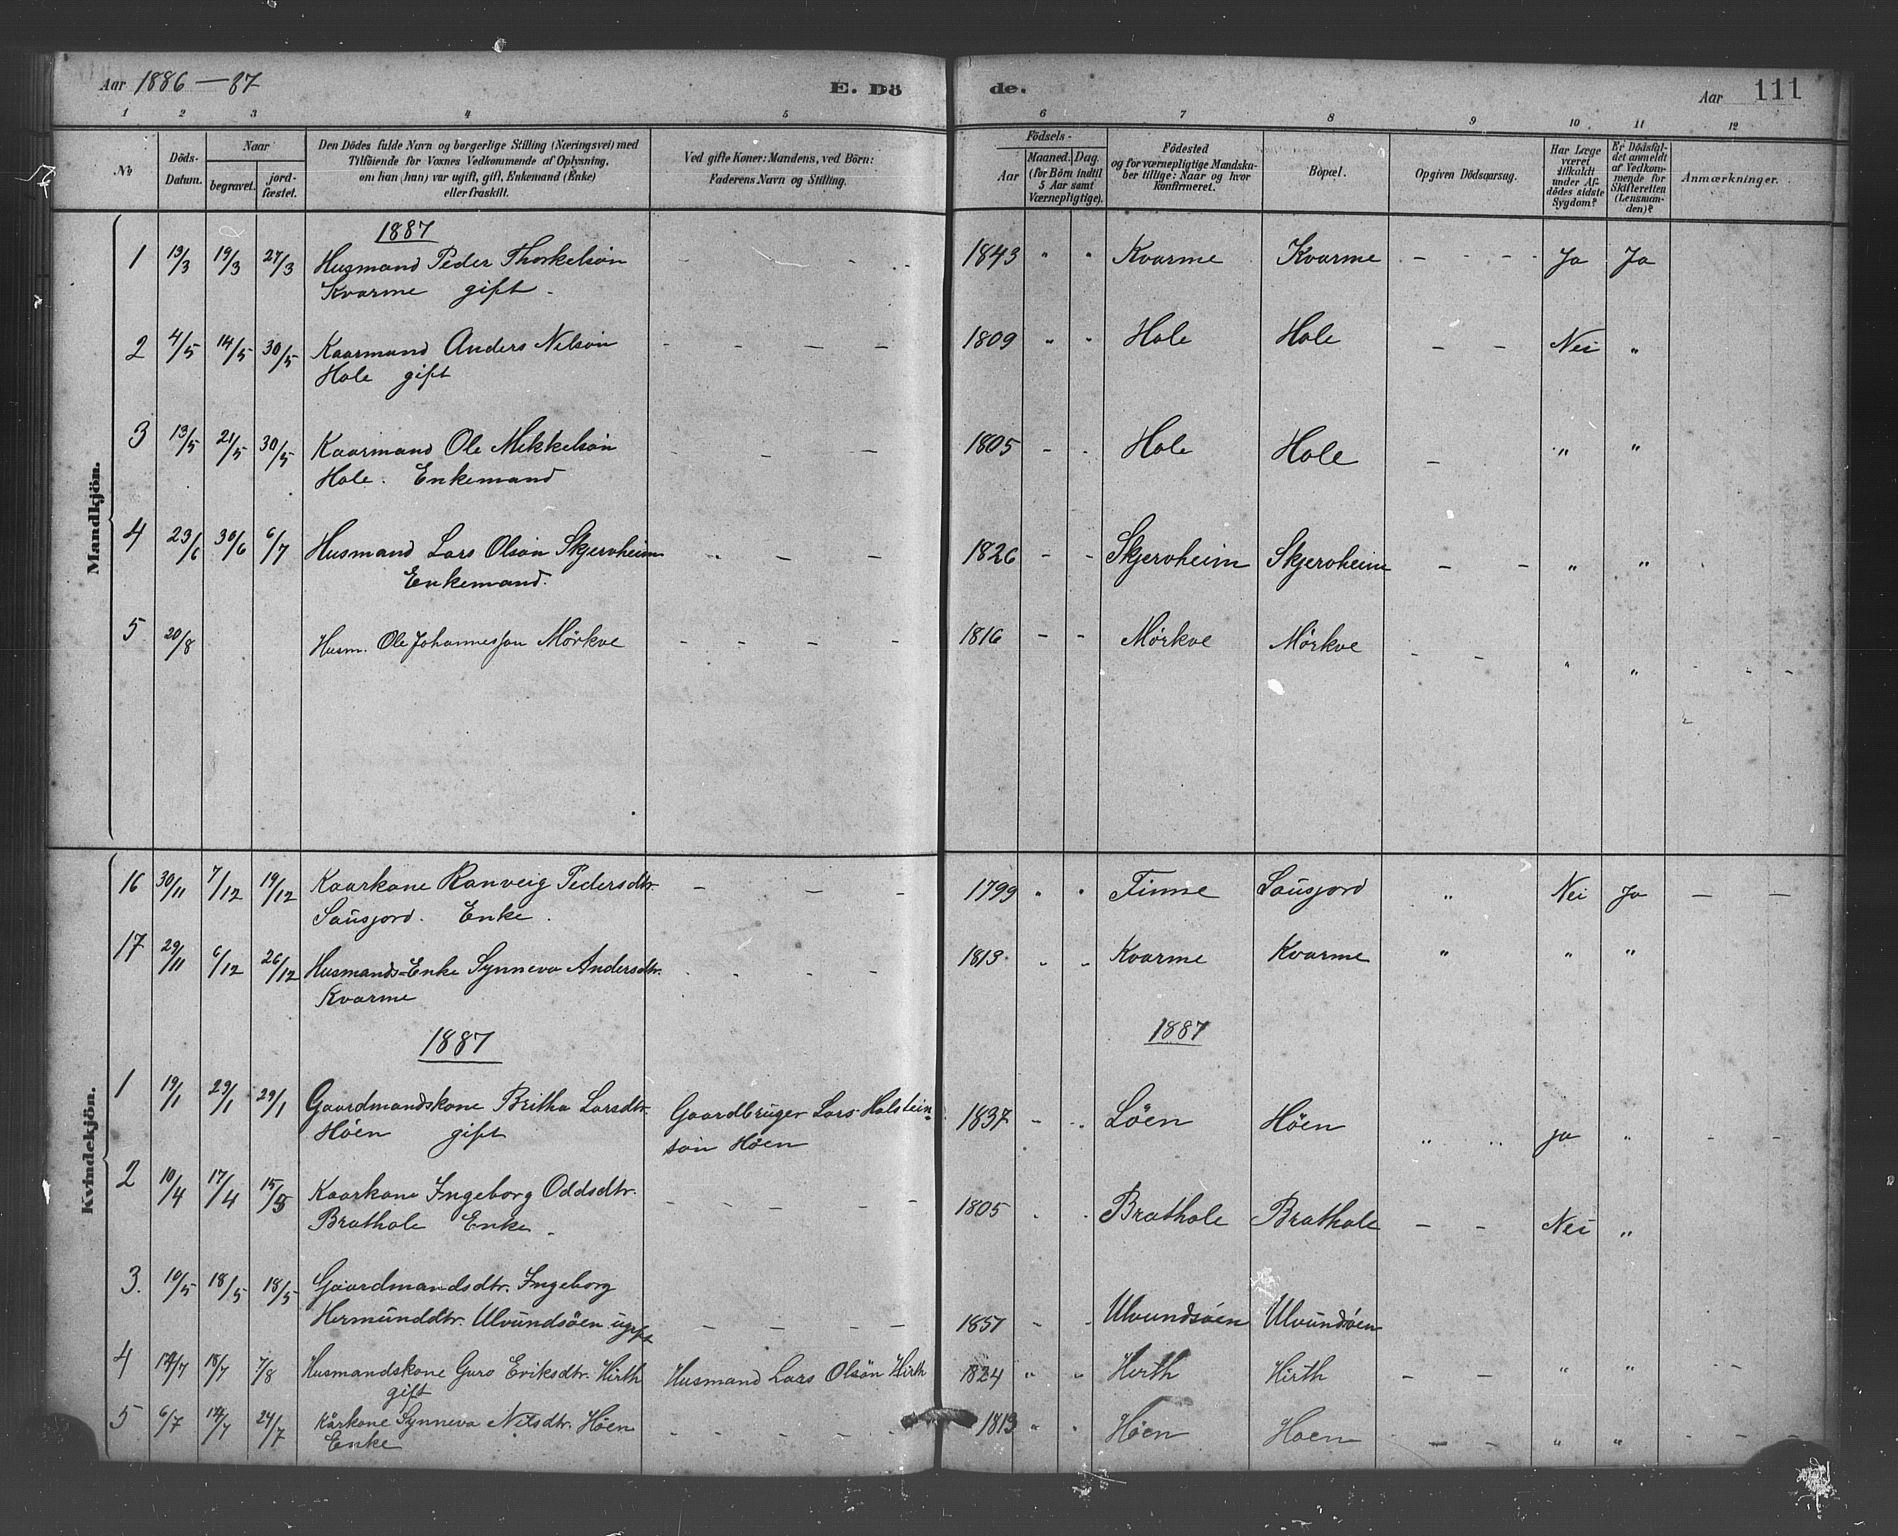 Aar 1886–87 E. Dö de. Aar 111
1 2 3 4 5 6 7 8 9 10 11 12
No Döds-Datum. Naar begravet. jordfæstet. Den Dödes fulde Navn og borgerlige Stilling (Næringsvei) med Tilföiende for Voxnes Vedkommende af Oplysning, om han (hun) var ugift, gift, Enkemand (Enke) eller fraskilt. Ved gifte Koner: Mandens, ved Börn: Faderens Navn og Stilling. Födsels- Aar Maaned. Dag. (for Börn indtil 5 Aar samt Værnepligtige). Födested og for værnepligtige Mandskaber tillige: Naar og hvor konfirmeret. Bopæl. Opgiven Dödsaarsag. Har Læge været tilkaldt under Afdödes sidste Sygdom? Er Dödsfaldet anmeldt af Vedkommende for Skifteretten (Lensmanden)? Anmærkninger.
Mandkjön.
1887
1 13/3 19/3 27/3 Husmand Peder Thorkelsön - - - 1843 " " Kvarme Kvarme - - - - Ja Ja
Kvarme gift -
2 4/5 14/5 30/5 Kaarmand Anders Nilsön - - - - 1809 " " Hole Hole - - Nei "
Hole gift
3 13/5 21/5 30/5 Kaarmand Ole Mikkelsön - - - 1805 - - Hole Hole - " "
Hole. Enkemand
4 23/6 30/6 6/7 Husmand Lars Olsön Skjervheim " - - 1826 - - Skjervheim Skjervheim - - " "
Enkemand.
5 20/8 Husm. Ole Johannesson Mörkve - - - - 1816 - - Mörkve Mörkve - - " " - -
Kvindekjön.
16 30/11 7/12 19/12 Kaarkone Ranveig Pedersdtr. - - - 1799 " " Finne Sausjord " Nei Ja - -
Sausjord. Enke.
17 29/11 6/12 26/12 Husmands-Enke Synneva Andersdtr. - - - - 1813 " " Kvarme Kvarme " " "
Kvarme
1887 1887
1 19/1 29/1 29/1 Gaardmandskone Britha Larsdtr. Gaardbruger Lars Halstein- 1837 - - Löen Höen " " ja " - -
Höen gift sön Höen
2 10/4 17/4 15/5 Kaarkone Ingeborg Oddsdtr. - - - - 1805 " " Brathole Brathole - - Nei "
Brathole Enke -
3. 10/5 18/5 18/5 Gaardmandsdtr. Ingeborg
Hermunddtr. Ulvundsöen ugift - - - - 1857 - - Ulvundsöen Ulvundsöen
4 18/7 7/8 Husmandskone Guro Eriksdtr. Hirth Husmand Lars Olsön Hirth 1824 " " Hirth Hirth - - " "
gift
5 6/7 24/7 Kårkone Synneva Nilsdtr. Höen - - - - 1813 " " Höen Höen - - " " - - -
Enke